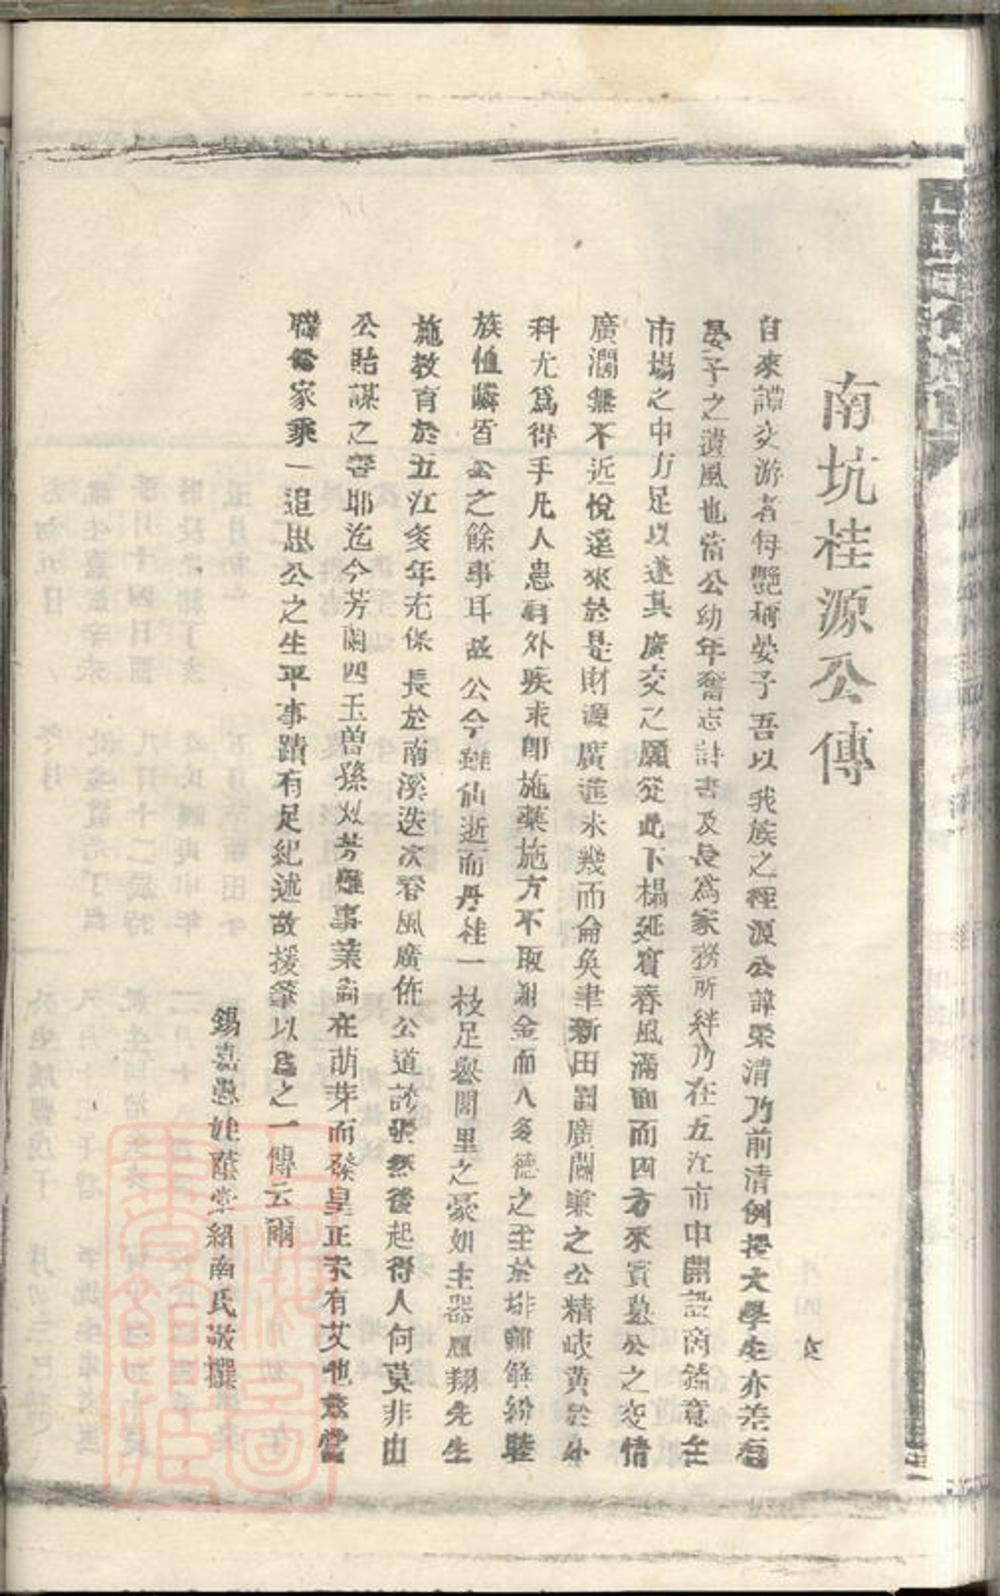 南坑桂源公傳
自來譚交游者每艷稱晏子吾以我族之桂源公諱榮清乃前清例授大學生亦差有
晏子之遺風也當公幼年奮志詩書及長為家務所絆乃在五江市中開設商鋪意在
市場之中方足以遂其廣交之願從此下榻延賓春風滿面而四方來賓慕公之交情
廣濶無不近悅遠來於是財源廣進未幾而侖奐聿新田園廣闢兼之公精岐黃於外
科尤為得手凡人患有外疾求即施藥施方不取謝金而人多德之至於排難解紛睦
族恤鄰皆公之餘事耳故公今雖仙逝而丹桂一枝足譽閭里之豪如主器鳳翔先生
施教育於五江多年充保長於南溪迭次春風廣佈公道訟張然後起得人何莫非由
公貽謀之善耶迄今芳蘭四玉曾孫双芳雖事業尚在萌芽而發皇正未有艾也茲當
聯修家乘一追思公之生平事蹟有足紀述故援筆以為之一傳云爾
錫嘉愚姪蔭堂紹南氏敬撰